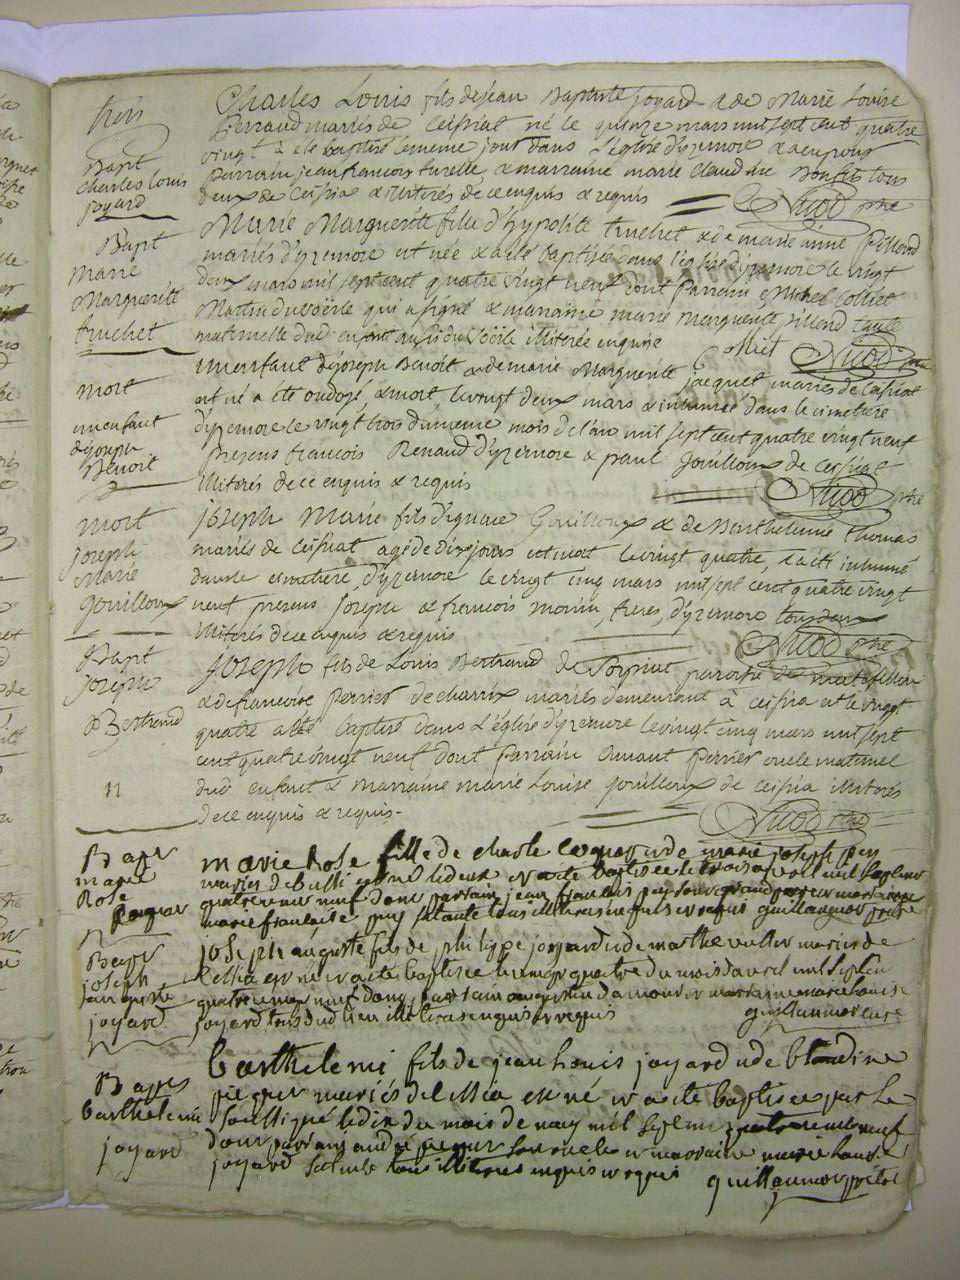 trois
Bapt
charles louis
joyard
Charles Louis fils de jean Baptiste joyard & de Marie Louise
Perraud mariés de Ceissiat né le quinze mars mil sept cent quatre
vingt & été baptisé le meme jour dans L'église d'yzernore & a eu pour
parrain jean francois turelle, & marraine marie claudine tous
deux de Ceissia & illiterés de ce enquis & requis Nicod ptre
Bapt
marie
Marguerite
truchet
Marie Marguerite fille d'hypolite truchet & de marie anne Pillond
mariés d'yzernore est née & a été baptisée dans l'église d'yzernore le vingt
deux mars mil sept cent quatre vingt neuf dont Parrain Michel Colliet
Martin qui a signé & marraine marie Marguerite pillond tante
maternelle dud enfant illiterée enquise
Colliet Nicod ptre
mort
un enfant
de joseph
Benoit
un enfant de joseph Benoit & de marie Marguerite jacquet mariés de Ceissiat
est né a été ondoyé, & mort le vingt deux mars & inhumé dans le cimetiere
d'yzernore le vingt trois du meme mois de l'an mil sept cent quatre vingt neuf
Presens francois Renaud d'yzernore & paul Gouilloux de Ceissiat
illiterés de ce enquis & requis Nicod ptre
mort
joseph
Marie
Gouilloux
joseph Marie fils d'ignace Gouilloux & de Barthelemie Thomas
mariés de Ceissiat agé de dix jours est mort le vingt quatre, & a été inhumé
dans le cimetière, d'yzernore le vingt cinq mars mil sept cent quatre vingt
neuf presens joseph & francois morin, freres, d'yzernore tous deux
illiterés de ce enquis & requis Nicod ptre
Bapt
joseph
Bertrand
joseph fils de Louis Bertrand de paroisse de matafillon
& de francoise Perrier de charrix mariés demeurant à Ceissia est né le vingt
quatre a été baptisé dans L'église d'yzernore le vingt cinq mars mil sept
cent quatre vingt neuf dont Parrain Perrier oncle maternel
dud enfant & marraine marie Louise Gouilloux de Ceissia illiterés
de ce enquis & requis. Nicod ptre
Bapt
marie
Rose
marie Rose fille de charle et de marie joseph puy
mariés de
quatre vingt neuf dont parrain jean francois puy
marie francoise puy sa tante tous illiteres enquis et requis guillaumot
Bapt
joseph
auguste
joyard
joseph auguste fils de philippe joyard et de marthe mariés de
Cessia et né et a été baptisé le vingt quatre du mois davril mil sept cen
quatre vingt neuf dont parrain augustin damour et marraine marie louise
joyard tous dud lieu illiteres enquis et requis guillaumot
Bapt
barthelemi
joyard
barthelemi fils de jean louis joyard et de blandine
mariés de Cessia est né et a été baptisé par le
soussigné le dix du mois de may mil sept cen quatre vingt neuf
dont parrain son oncle et marraine marie louise
joyard sa tante tous illiteres enquis et requis guillaumot